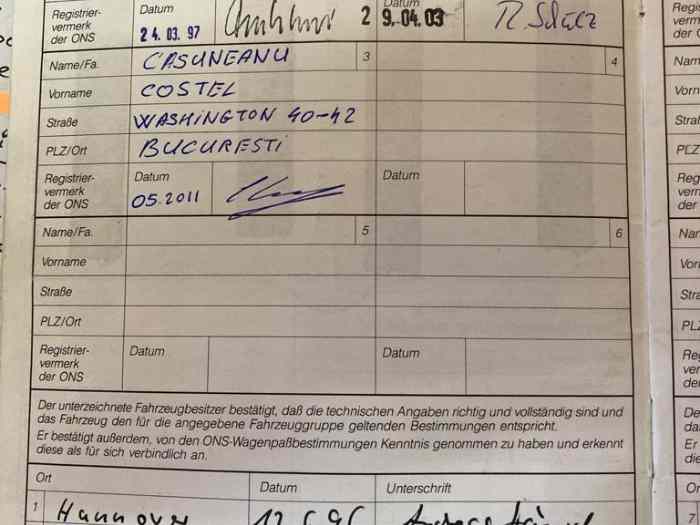 Registrier-
vermerk
der ONS
Datum
24.03.97
2
Datum
9.04.03
R. Scholz
Name/Fa.
CASUNEANU
3
4
Vorname
COSTEL
Straße
WASHINGTON 40-42
PLZ/Ort
BUCURESTI
Registrier-
vermerk
der ONS
Datum
05.2011
Datum
Name/Fa.
5
6
Vorname
Straße
PLZ/Ort
Registrier-
vermerk
der ONS
Datum
Datum
Der unterzeichnete Fahrzeugbesitzer bestätigt, daß die technischen Angaben richtig und vollständig sind und
das Fahrzeug den für die angegebene Fahrzeuggruppe geltenden Bestimmungen entspricht.
Er bestätigt außerdem, von den ONS-Wagenpaßbestimmungen Kenntnis genommen zu haben und erkennt
diese als für sich verbindlich an.
Ort
Datum
Unterschrift
1
Hannover